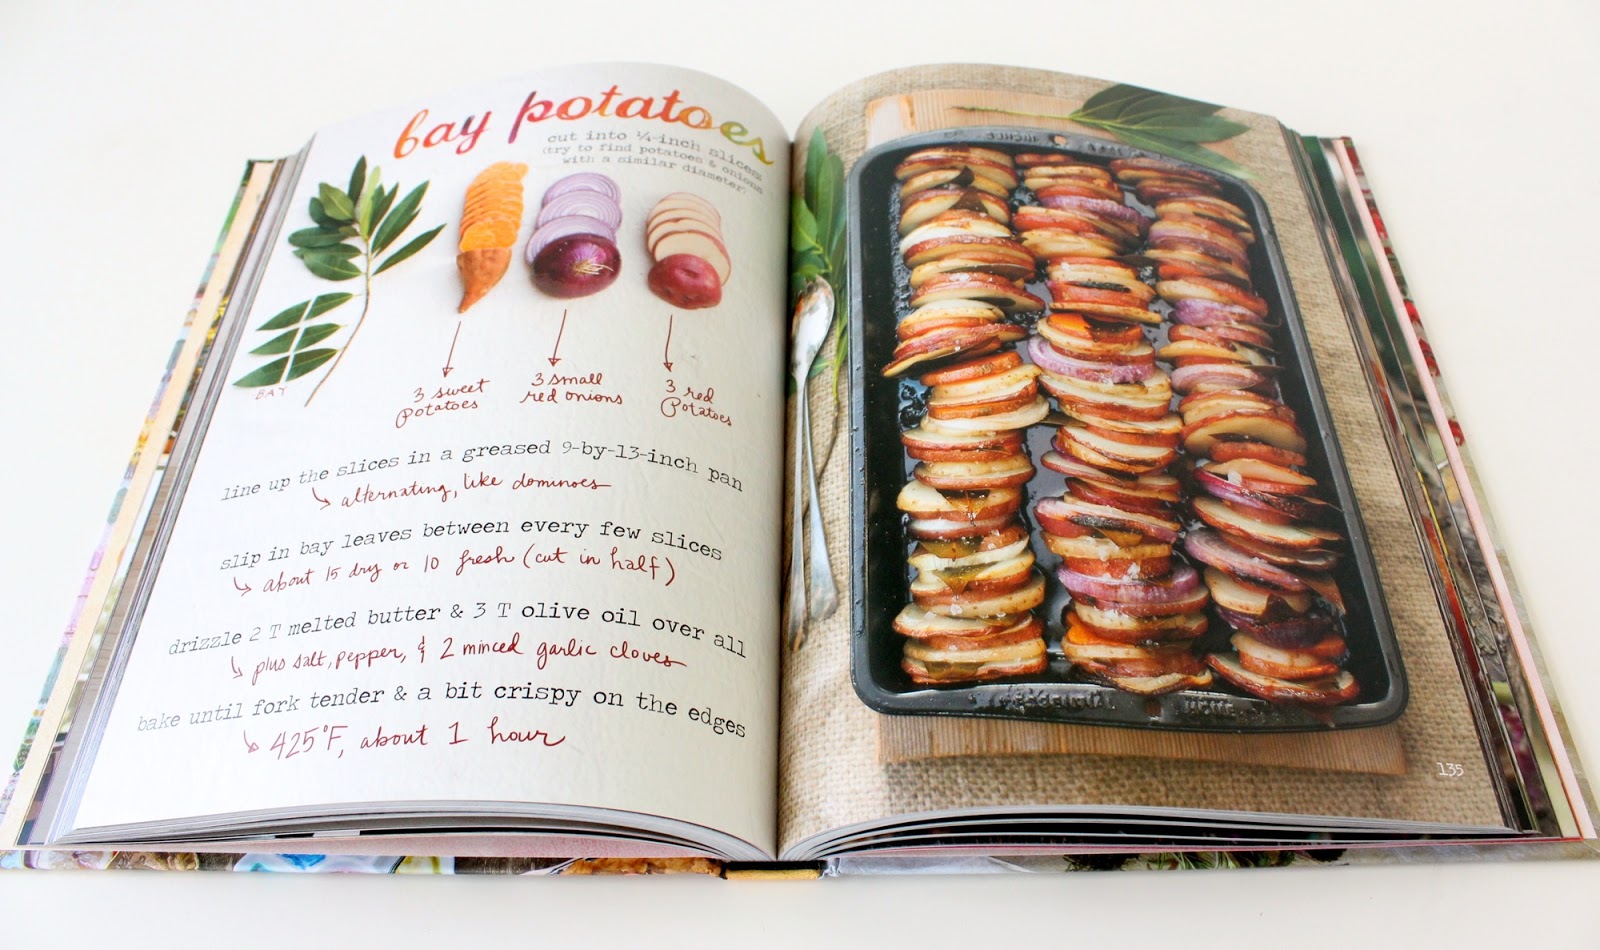 bay potatoes
cut into ¼-inch slices
(try to find potatoes & onions
with a similar diameter)
BAY
3 sweet
potatoes
3 small
red onions
3 red
potatoes
line up the slices in a greased 9-by-13-inch pan
alternating, like dominoes
slip in bay leaves between every few slices
about 15 dry or 10 fresh (cut in half)
drizzle 2 T melted butter & 3 T olive oil over all
plus salt, pepper, & 2 minced garlic cloves
bake until fork tender & a bit crispy on the edges
425°F, about 1 hour
135